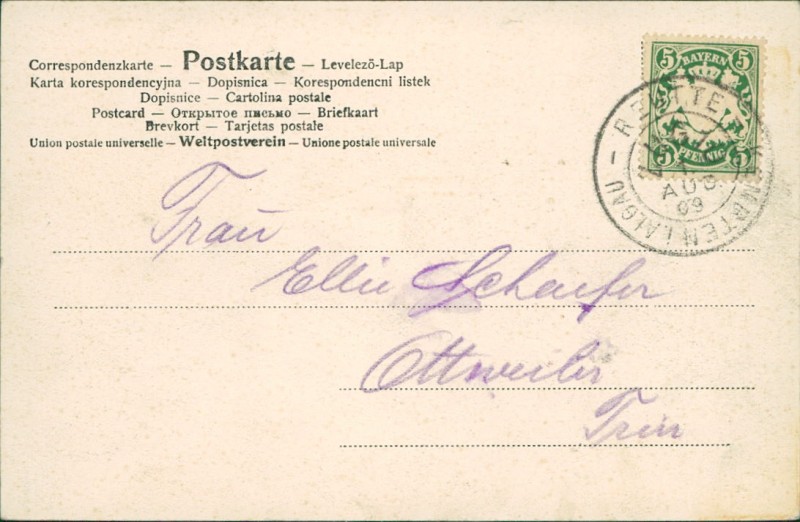 Correspondenzkarte — Postkarte — Levelező-Lap
Karta korespondencyjna — Dopisnica — Korespondencni listek
Dopisnice — Cartolina postale
Postcard — Открытое письмо — Briefkaart
Brevkort — Tarjetas postale
Union postale universelle — Weltpostverein — Unione postale universale
5 BAYERN 5
5 PFENNIG 5
KEMPTEN I. ALGÄU
AUG
09
Frau
Ellie Schaefer
Ottweiler
Trier